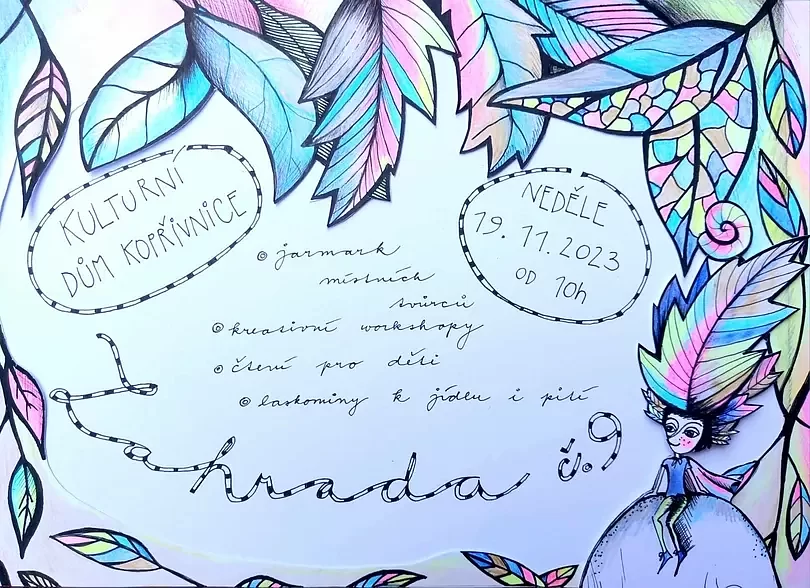 KULTURNÍ
DŮM KOPŘIVNICE
NEDĚLE
19. 11. 2023
OD 10h
jarmark
místních
tvůrců
kreativní workshopy
čtení pro děti
laskominy k jídlu i pití
Zahrada č.9